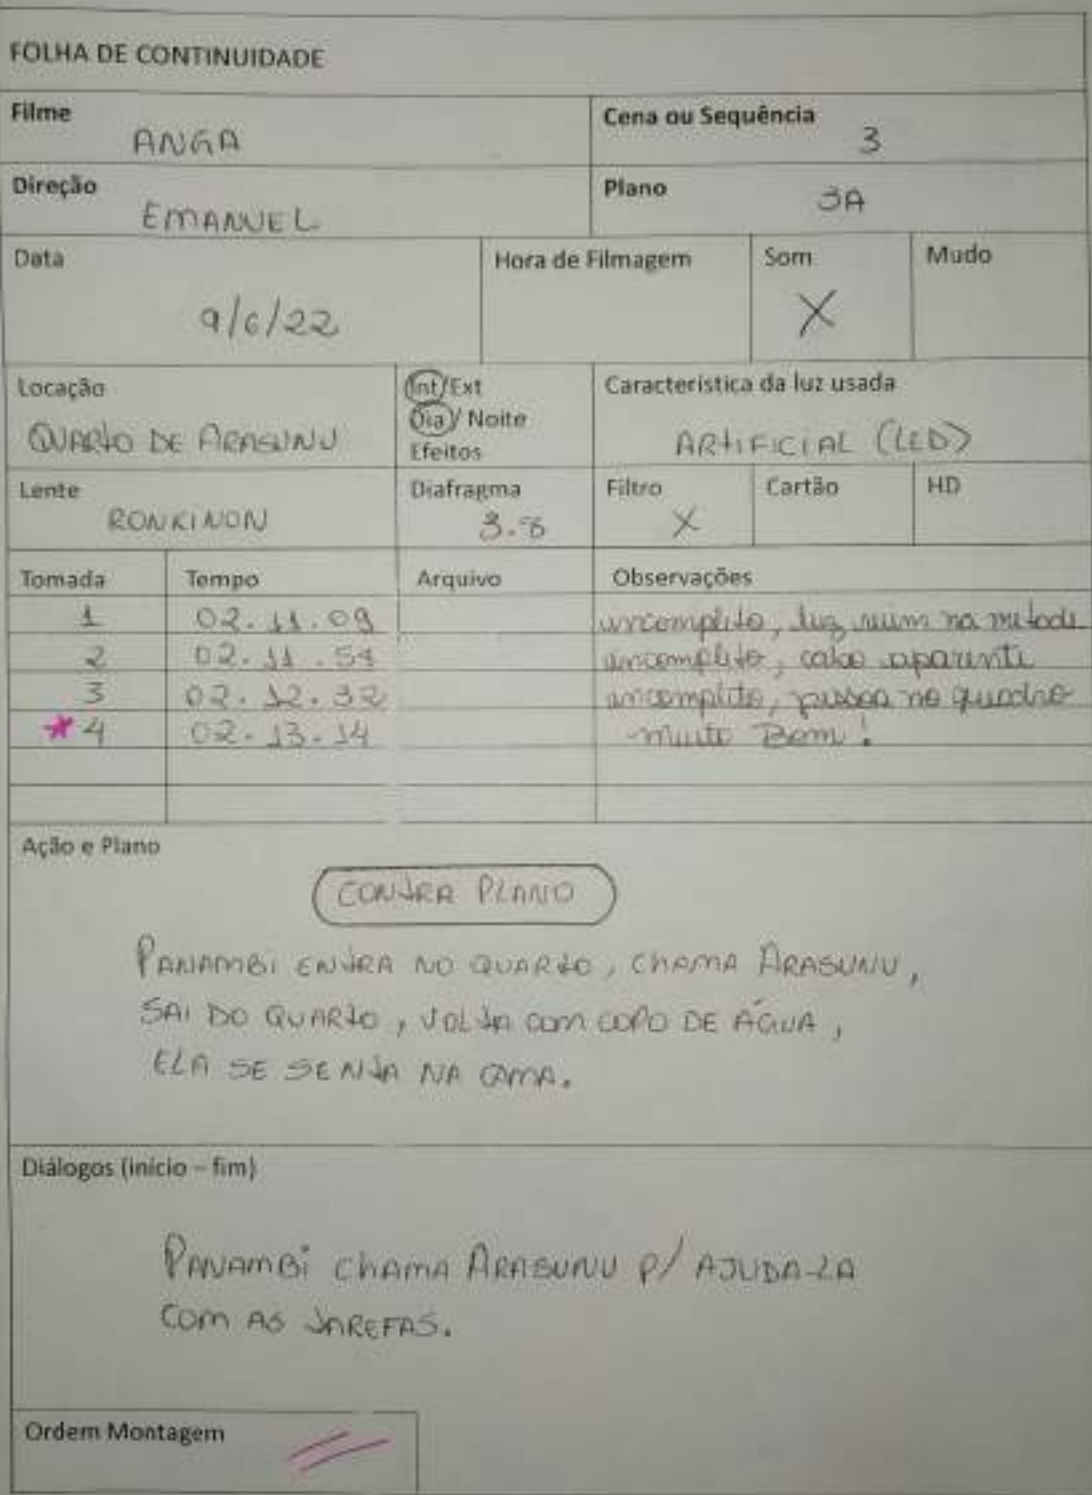 FOLHA DE CONTINUIDADE
Filme
ANGA
Cena ou Sequência
3
Direção
EMANUEL
Plano
3A
Data
9/6/22
Hora de Filmagem
Som
X
Mudo
Locação
QUARTO DE ARASUNU
Int/Ext
Dia/ Noite
Efeitos
Característica da luz usada
ARTIFICIAL (LED)
Lente
RONKINON
Diafragma
3.8
Filtro
X
Cartão
HD
Tomada Tempo Arquivo Observações
1 02.11.09 incompleto, luz ruim na metade
2 02.11.54 incompleto, cabo aparente
3 02.12.32 incompleto, pessoa no quadro
* 4 02.13.14 muito Bom!
Ação e Plano
CONTRA PLANO
PANAMBI ENTRA NO QUARTO, CHAMA ARASUNU,
SAI DO QUARTO, VOLTA COM COPO DE ÁGUA,
ELA SE SENTA NA CAMA.
Diálogos (início – fim)
PANAMBI CHAMA ARASUNU P/ AJUDA-LA
COM AS TAREFAS.
Ordem Montagem